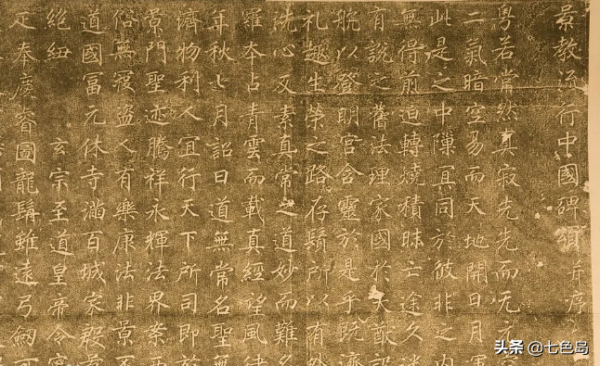 景教流行中國碑頌并序
粵若常然真寂先先而无元
二氣暗空易而天地開日月運
此是之中隙冥同於彼非之內
無得煎迫轉燒積昧亡途久迷
有說之舊法理家國於大猷設
航以登明宮含靈於是乎既濟
礼趣生榮之路存鬚所以有外
洗心反素真常之道妙而難名
羅本占青雲而載真經望風律
年秋七月詔曰道無常名聖無
濟物利人宜行天下所司即於
景門聖迹騰祥永輝法界案西
俗無寇盜人有樂康法非景不
道國富元休寺滿百城家殷景
絕紐 玄宗至道皇帝令寧
睿圖龍髯雖遠弓劍可
头条 @七色岛